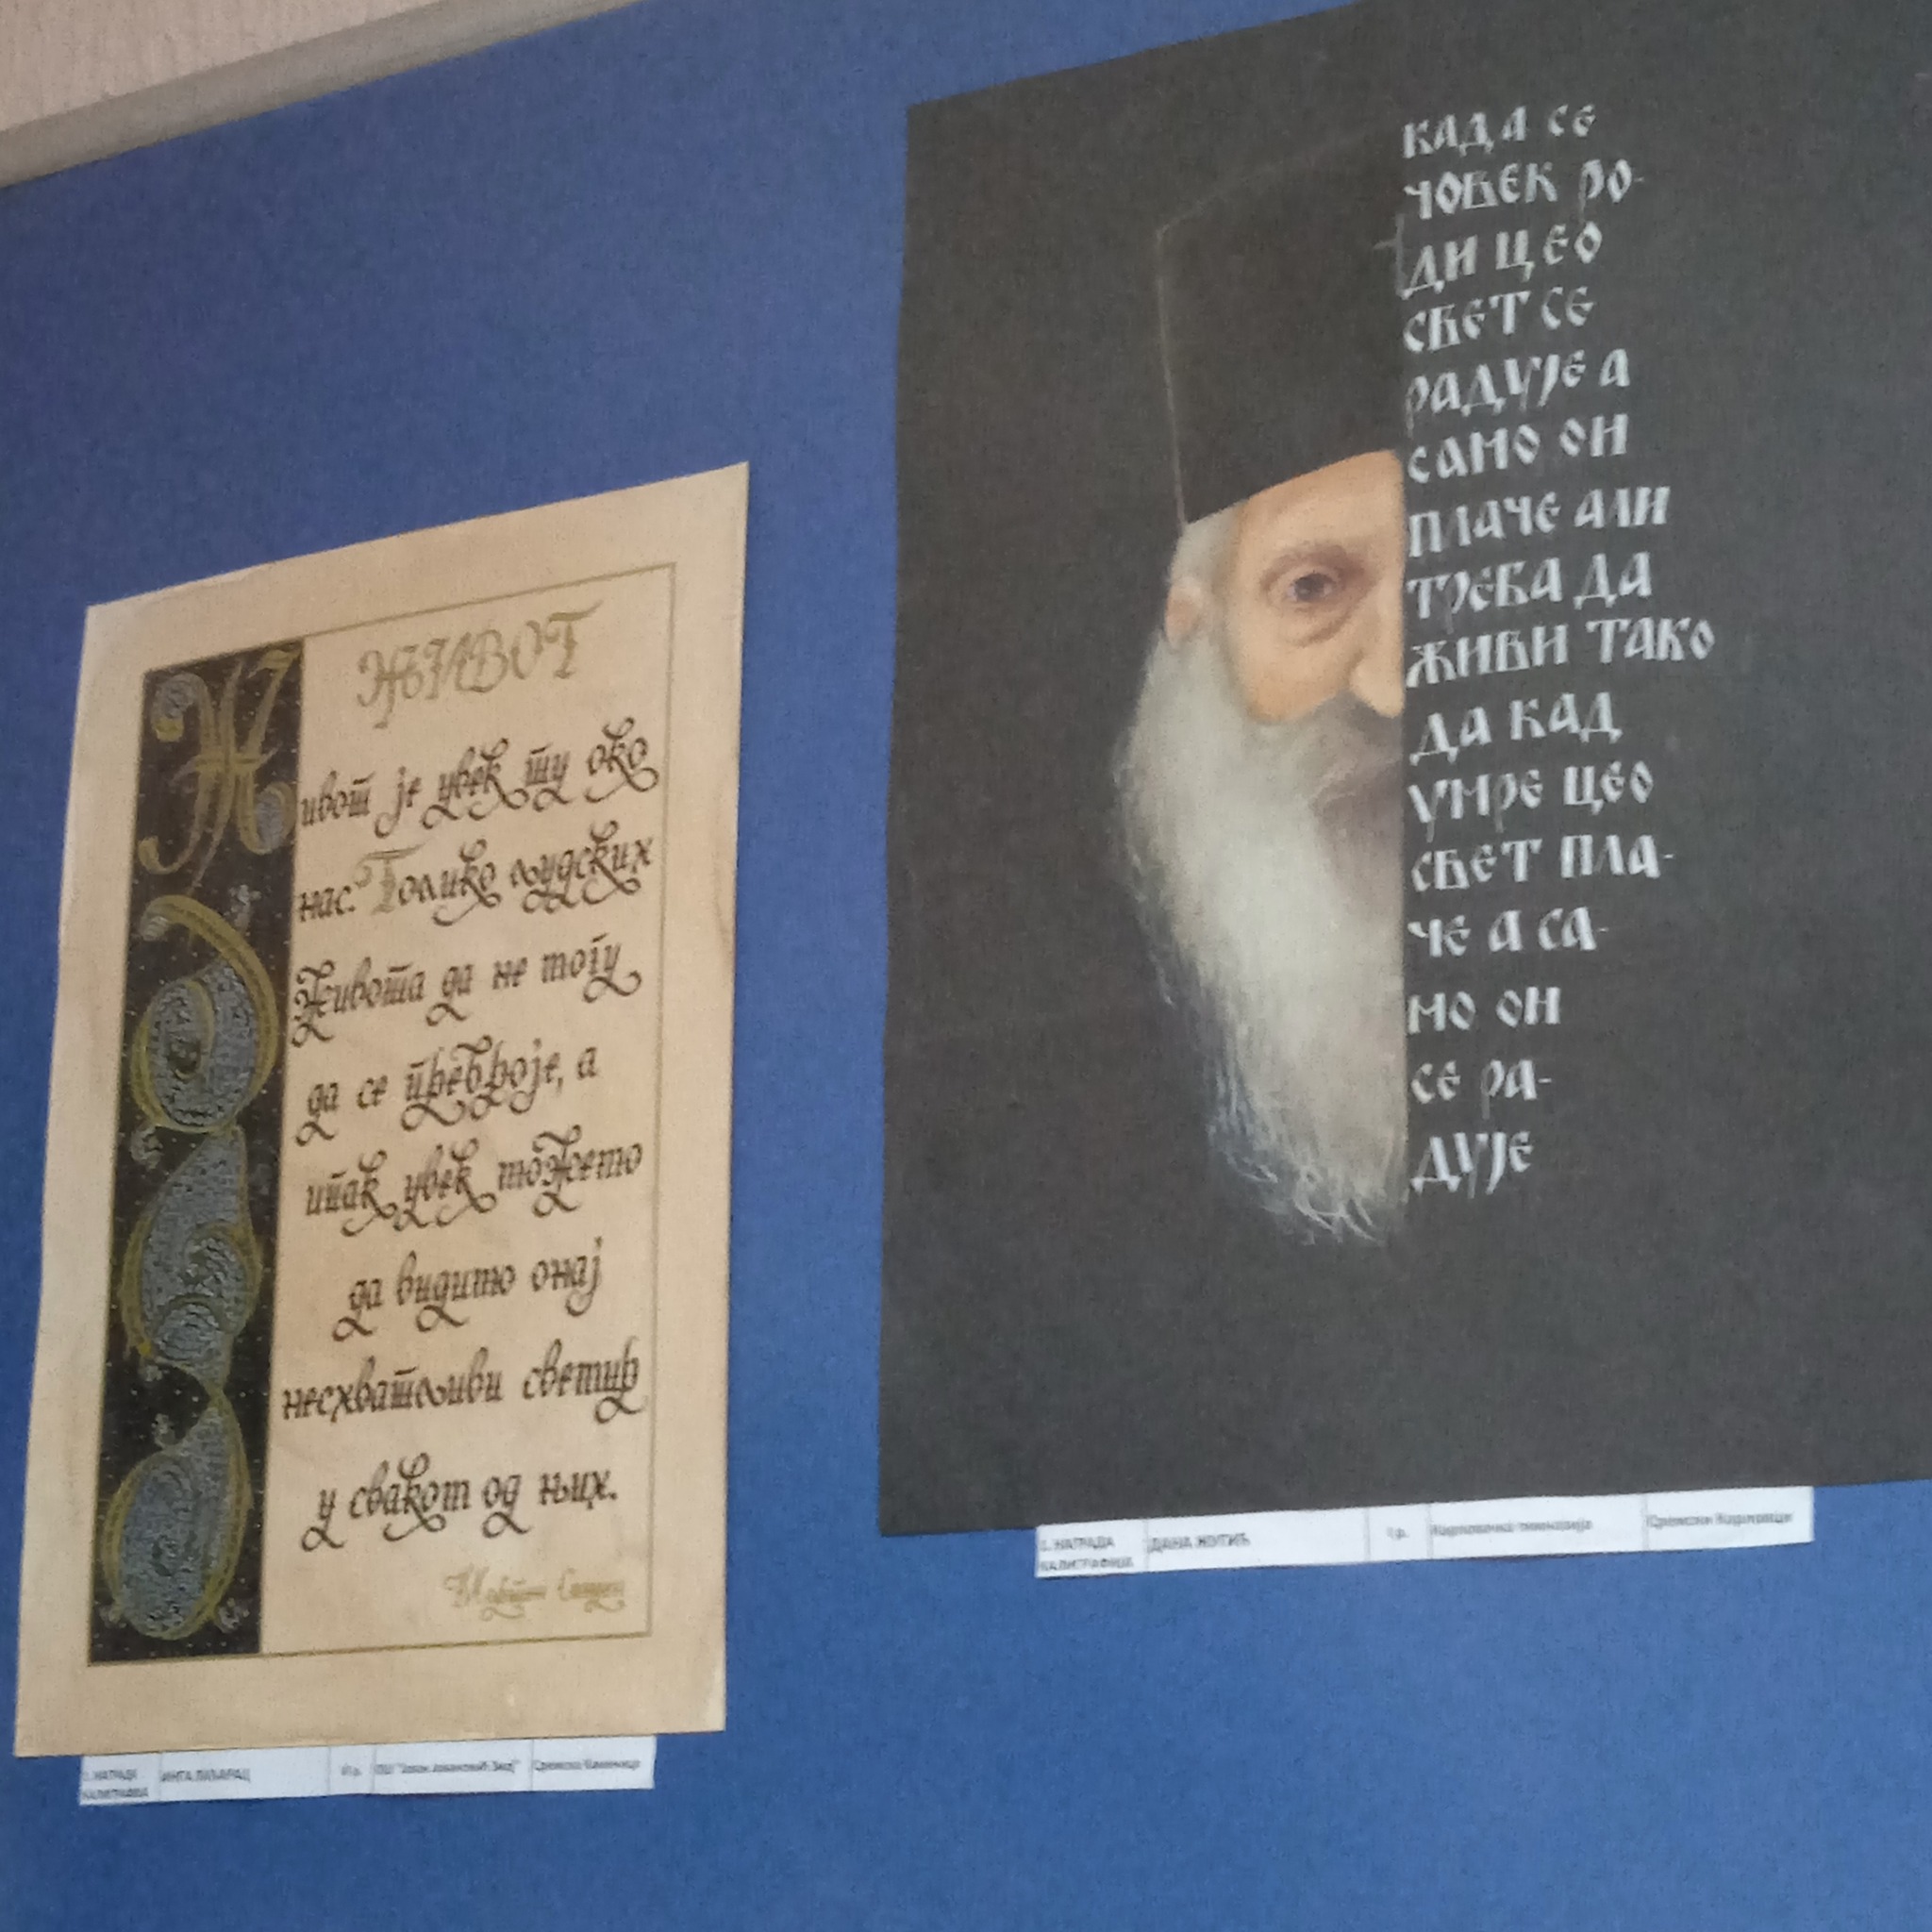 ЖИВОТ
Живот је увек ту око
нас. Толико људских
живота да не могу
да се преброје, а
ипак увек можемо
да видимо онај
несхватљиви свемир
у сваком од њих.
КАДА СЕ
ЧОВЕК РО-
ДИ ЦЕО
СВЕТ СЕ
РАДУЈЕ А
САМО ОН
ПЛАЧЕ АЛИ
ТРЕБА ДА
ЖИВИ ТАКО
ДА КАД
УМРЕ ЦЕО
СВЕТ ПЛА-
ЧЕ А СА-
МО ОН
СЕ РА-
ДУЈЕ
НАГРАДА ДАНА ЖОТИЋ Карловачка гимназија Сремски Карловци
КАЛИГРАФИЈА
НАГРАДА ИНГА ОШ "Јован Јовановић Змај" Сремска Каменица
КАЛИГРАФИЈА